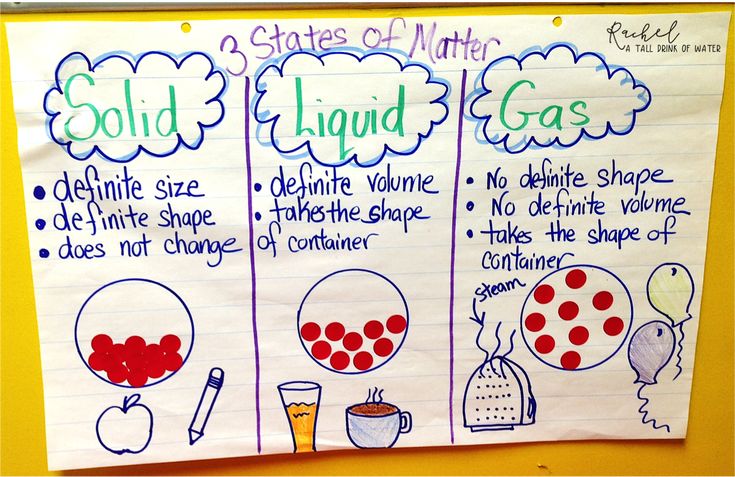 3 States of Matter
Rachel
A TALL DRINK OF WATER
Solid
• definite size
• definite shape
• does not change
Liquid
• definite volume
• takes the shape
of container
Gas
• No definite shape
• No definite volume
• takes the shape of
container
steam